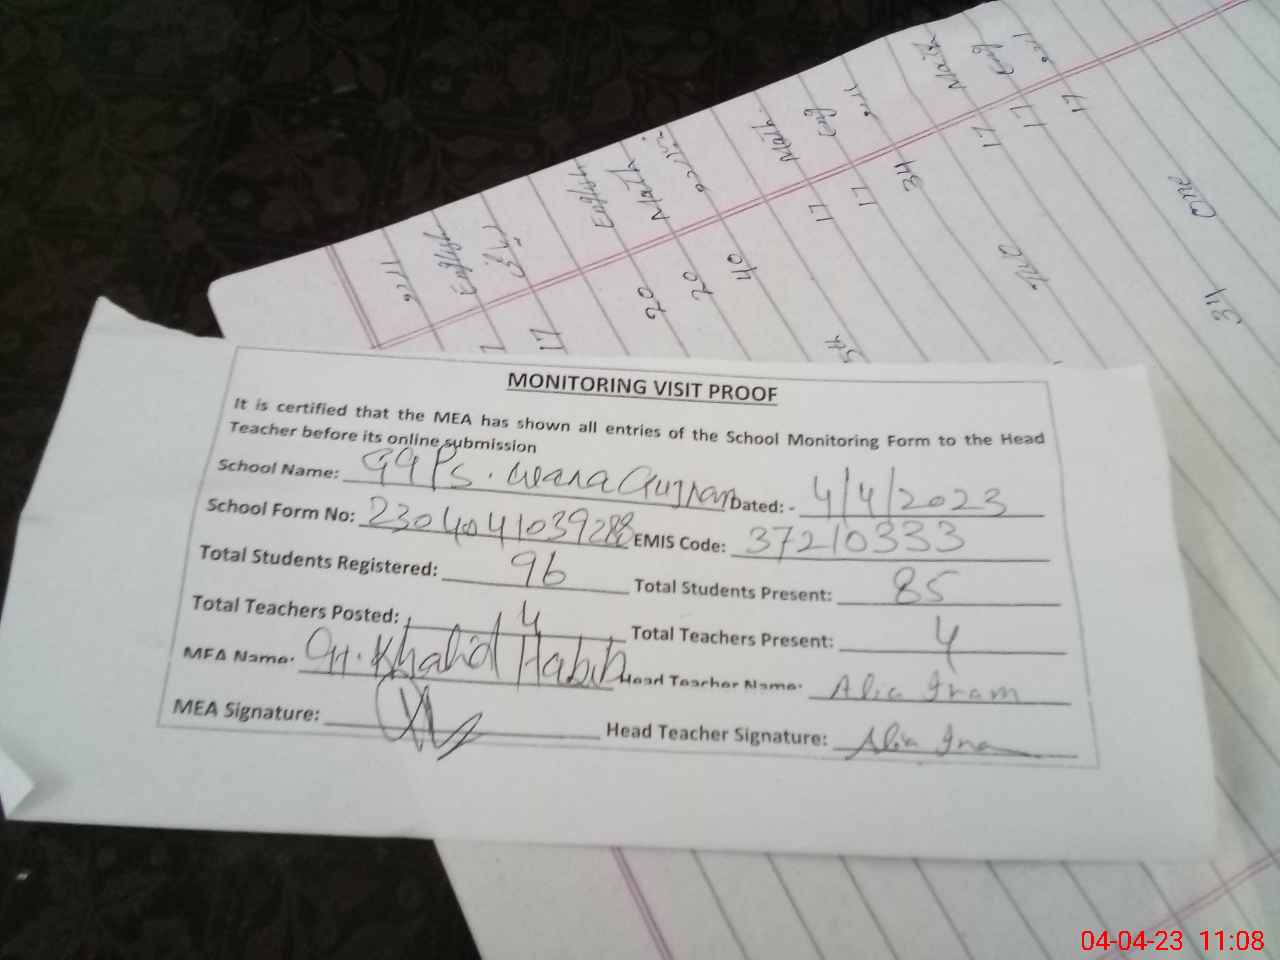 MONITORING VISIT PROOF
It is certified that the MEA has shown all entries of the School Monitoring Form to the Head
Teacher before its online submission
School Name: GGPS. Wara Gujran Dated: - 4/4/2023
School Form No: 2304041039288 EMIS Code: 37210333
Total Students Registered: 96 Total Students Present: 85
Total Teachers Posted: 4 Total Teachers Present: 4
MEA Name: CH. Khalid Habib Head Teacher Name: Alia Iram
MEA Signature: Head Teacher Signature: Alia Ira
English
17
English 20
Math 20
40
5th
Math 17
Eng 17
34
Math 17
Eng 17
17
one
34
04-04-23 11:08